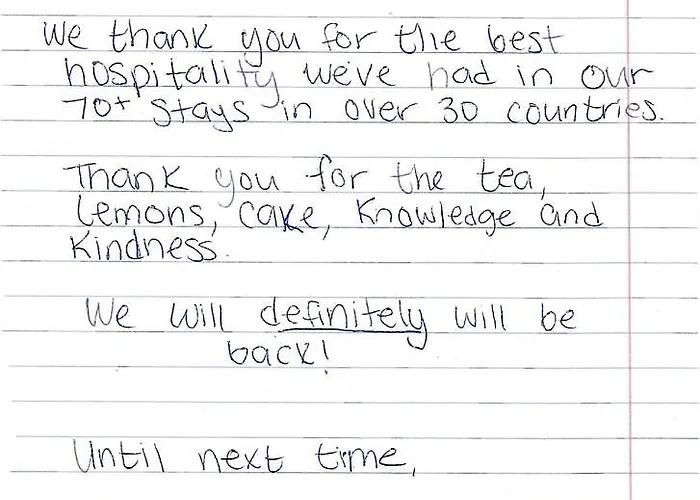 We thank you for the best
hospitality we've had in our
70+ stays in over 30 countries.
Thank you for the tea,
Lemons, cake, Knowledge and
Kindness.
We will definitely will be
back!
Until next time,